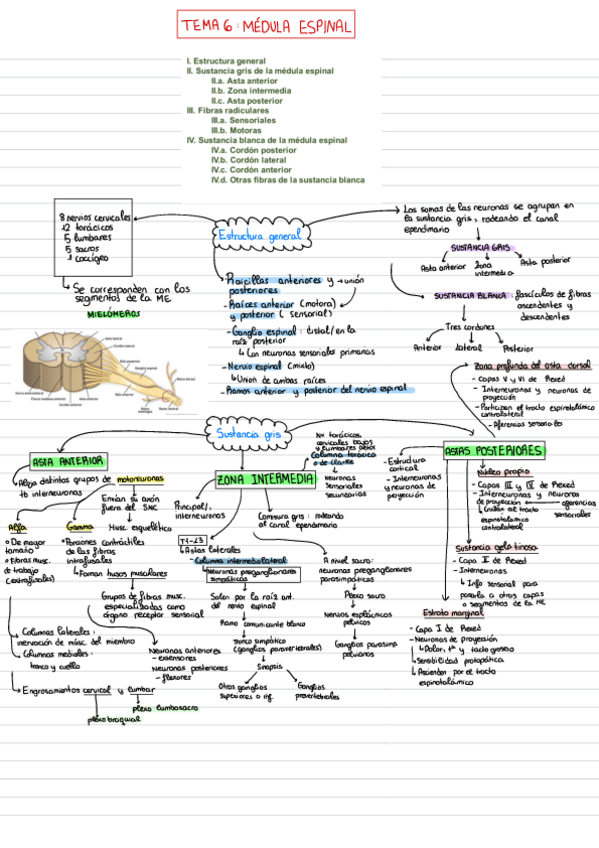 TEMA 6: MÉDULA ESPINAL
I. Estructura general
II. Sustancia gris de la médula espinal
II.a. Asta anterior
II.b. Zona intermedia
II.c. Asta posterior
III. Fibras radiculares
III.a. Sensoriales
III.b. Motoras
IV. Sustancia blanca de la médula espinal
IV.a. Cordón posterior
IV.b. Cordón lateral
IV.c. Cordón anterior
IV.d. Otras fibras de la sustancia blanca
8 nervios cervicales
12 torácicos
5 lumbares
5 sacros
1 coccígeo
Se corresponden con los
segmentos de la ME
MIELÓMEROS
Estructura general
Raicillas anteriores y → unión
posteriores
- Raíces anterior (motora)
y posterior (sensorial)
- Ganglio espinal: distal/en la
raíz posterior
↳ Con neuronas sensoriales primarias
- Nervio espinal (mixto)
↳ Unión de ambas raíces
- Ramos anterior y posterior del nervio espinal
Los somas de las neuronas se agrupan en
la sustancia gris, rodeando el canal
ependimario
SUSTANCIA GRIS
Asta anterior
Zona
intermedia
Asta posterior
SUSTANCIA BLANCA: fascículos de fibras
ascendentes y
descendentes
Tres cordones
Anterior
lateral
Posterior
Zona profunda del asta dorsal
- Capas V y VI de Rexed
- Interneuronas y neuronas de
proyección
- Participan el tracto espinotalámico
contralateral
- Aferencias sensoriales
Sustancia gris
ASTA ANTERIOR
Aloja distintos grupos de motoneuronas
tb interneuronas
Envían su axón
fuera del SNC
Musc. esquelético
Alfa
o De mayor
tamaño
o Fibras musc.
de trabajo
(extrafusales)
Gamma
o Porciones contráctiles
de las fibras
intrafusales
↳ Forman husos musculares
Grupos de fibras musc.
especializadas como
órgano receptor sensorial
Columnas laterales:
inervación de músc. del miembro
Columnas mediales:
tronco y cuello
Neuronas anteriores
- extensores
Neuronas posteriores
- flexores
Engrosamientos cervical y lumbar
plexo lumbosacro
plexo braquial
ZONA INTERMEDIA
Principal/.
interneuronas
Comisura gris: rodeando
al canal ependimario
Columna torácica
o de Clarke
Neuronas
sensoriales
secundarias
↳ Astas laterales
- Columna intermediolateral
Neuronas preganglionares
simpáticas
Salen por la raíz ant.
del nervio espinal
Ramo comunicante blanco
Tronco simpático
(ganglios paravertebrales)
Sinapsis
Otros ganglios
superiores o inf.
Ganglios
prevertebrales
A nivel sacro:
neuronas preganglionares
parasimpáticas
Plexo sacro
Nervios esplácnicos
pélvicos
Ganglios parasimp.
pelvianos
ASTAS POSTERIORES
- Estructura
cortical
- Interneuronas
y neuronas de
proyección
Núcleo propio
- Capas III y IV de Rexed
- Interneuronas y neuronas
de proyección
aferencias
sensoriales
↳ Crean al tracto
espinotalámico
contralateral
Sustancia gelatinosa
- Capa II de Rexed
- Interneuronas
↳ Info sensorial para
pasarla a otras capas
o segmentos de la ME
Estrato marginal
- Capa I de Rexed
- Neuronas de proyección
↳ Dolor, tª y tacto grosero
↳ Sensibilidad protopática
↳ Ascienden por el tracto
espinotalámico